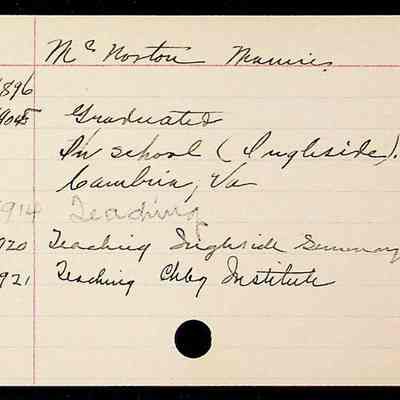 Mc Norton Mamie.
1896
1904-5 Graduated
In school (Ingleside).
Cambria, Va
1914 Teaching
1920 Teaching Ingleside Seminary
1921 Teaching Chbg Institute